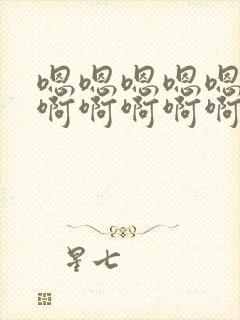 嗯嗯嗯嗯嗯
啊啊啊啊啊
星七